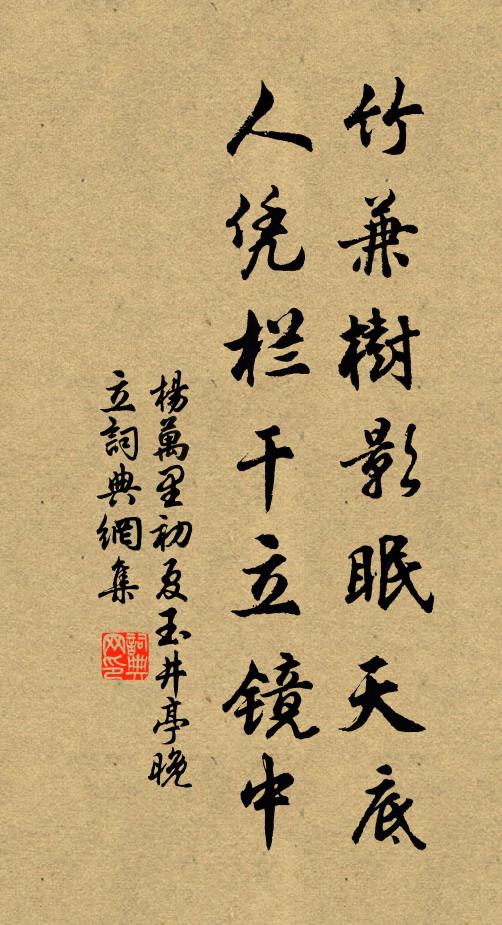 竹兼樹影眠天底
人凭栏干立镜中
楊萬里初夏玉井亭晚
立詞典網集
詞典
网印